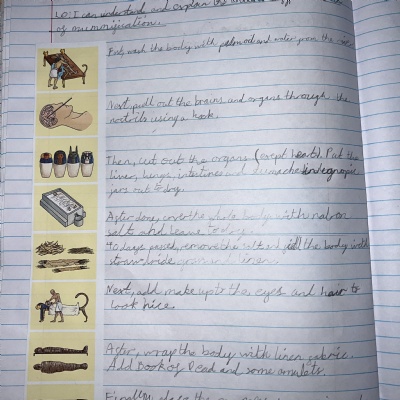 LO: I can understand and explain the
of mummification.
First, wash the body with palm oil and water from the
Next, pull out the brains and organs through the
nostrils using a hook.
Then, cut out the organs (except heart). Put the
liver, lungs, intestines and
jars to dry.
After done, cover the whole body with natron
salt and leave to dry.
70 days passed, remove the salt and fill the body with
straw, and linen.
Next, add make up to the eyes and hair to
look nice.
After, wrap the body with linen fabric.
Add Book of Dead and some amulets.
Finally,